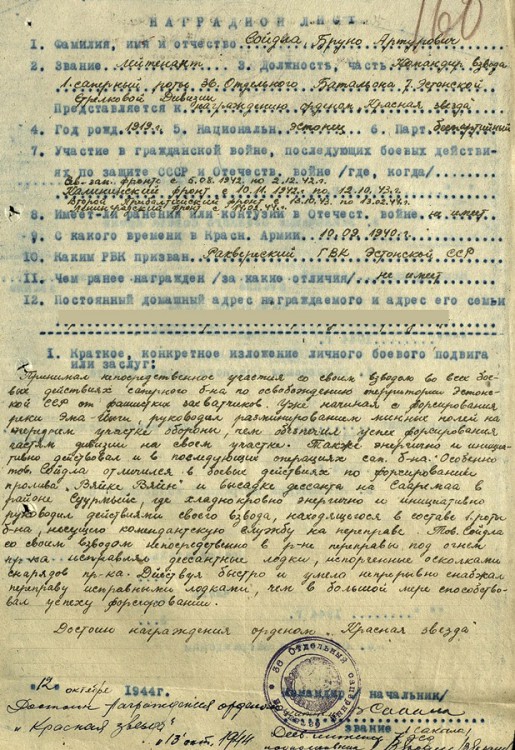 160
НАГРАДНОЙ ЛИСТ
1. Фамилия, имя и отчество Сойдла Бруно Артурович
2. Звание лейтенант 3. Должность, часть Командир взвода
1. саперной роты 36. Отдельного Батальона 7. Эстонской
Стрелковой Дивизии
Представляется к награждению орденом Красная звезда
4. Год рожд. 1919 г. 5. Национальн. эстонец 6. Парт. беспартийный
7. Участие в гражданской войне, последующих боевых действи-
ях по защите СССР и Отечеств. войне /где, когда/
Сев-зап. фронт с 2.12.42г.
Калининский фронт с 10.11.1942г. по 12.10.43г.
Второй Прибалтийский фронт с 13.10.43 по 13.02.44г.
Ленинградский фронт с
8. Имеет-ли ранения или контузии в Отечест. войне не имеет
9. С какого времени в Красн. Армии 10.09.1940г.
10. Каким РВК призван Раквериский ГВК Эстонской ССР
11. Чем ранее награжден /за какие отличия/ не имеет
12. Постоянный домашний адрес награждаемого и адрес его семьи
1. Краткое, конкретное изложение личного боевого подвига
или заслуг:
Принимал непосредственное участия со своим взводом во всех бое-
вых действиях саперного б-на по освобождению территории Эстонс-
кой ССР от фашистких захватчиков. Уже начиная с форсирования
реки Эма-Йыги руководил разминированием минных полей на
переднем участке обороны, чем обеспечил успех форсирования
частям дивизии на своем участке. Также энергично и инициа-
тивно действовал и в последующих операциях сап. б-на. Особенно
тов. Сойдла отличился в боевых действиях по форсировании
пролива Вяйке Вяйн" и высадке десанта на Саарема в
районе где хладнокровно энергично и инициативно
руководил действиями своего взвода, находящегося в составе 1. роты
б-на, несущего комендантскую службу на переправе. Тов. Сойдла
со своим взводом непосредственно в р-не переправы под огнем
пр-ка исправлял десантные лодки, испорченные осколками
снарядов пр-ка. Действуя быстро и умело непрерывно снабжал
переправу исправными лодками, чем в большой мере способство-
вал успеху форсировании.
Достоин награждения орденом Красная звезда
"12" октября 1944г.
Командир начальник/
36 Отдельный
Достоин награждения орденом
"Красная звезда"
звание
"13" окт. 1944